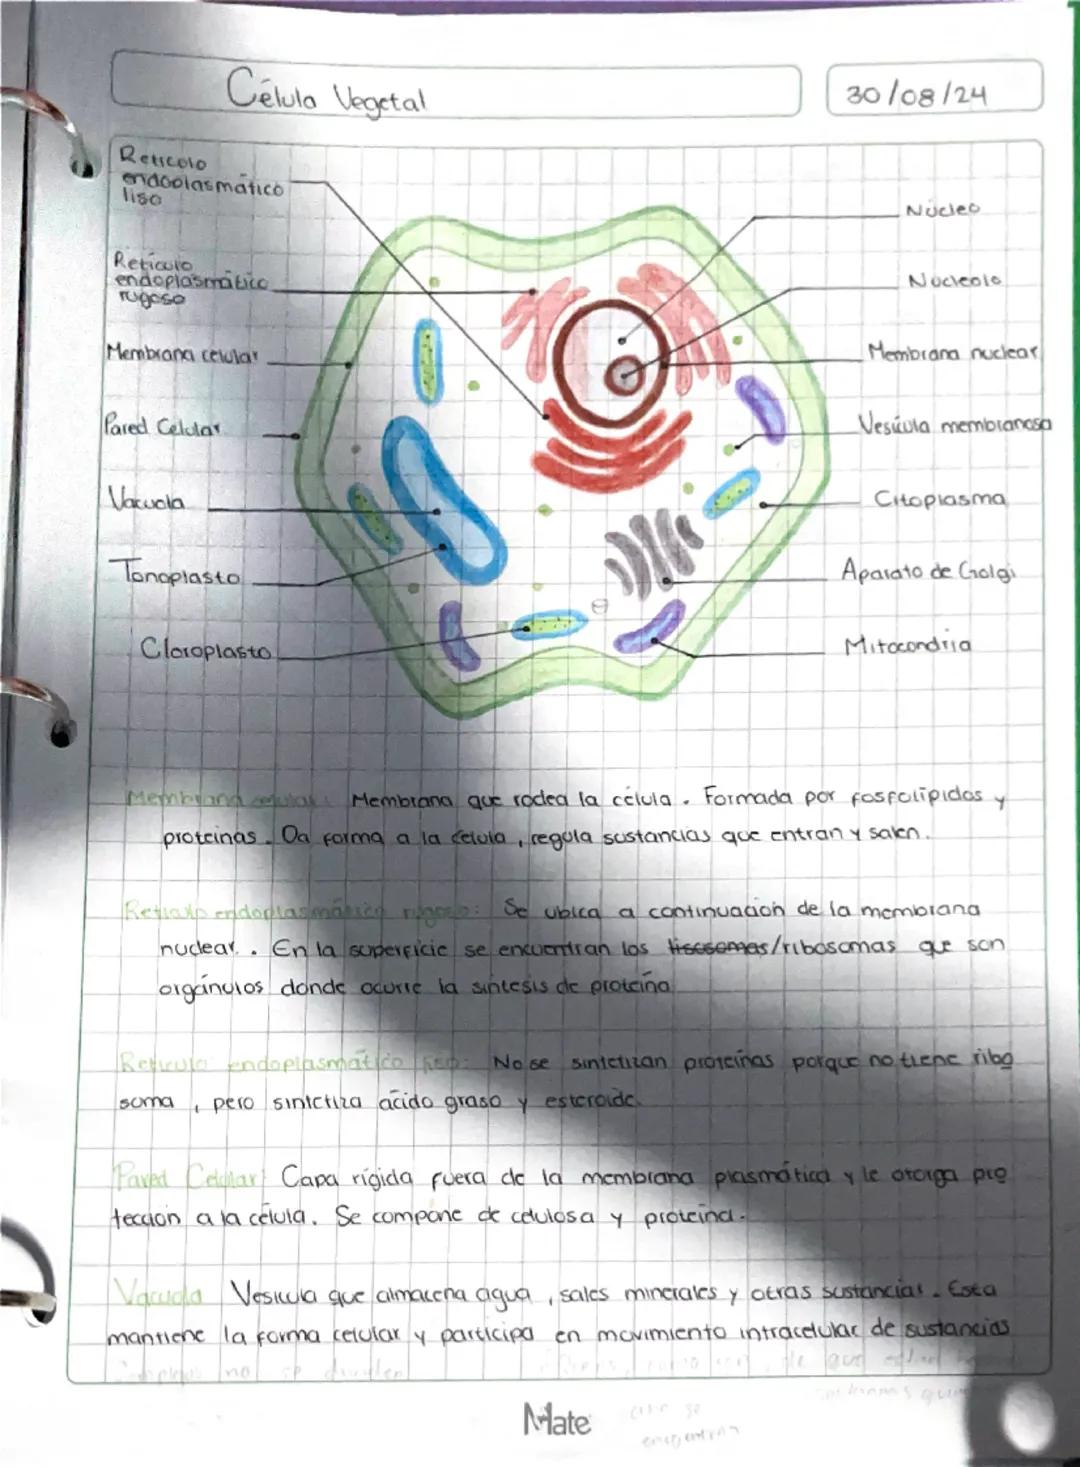 Célula Vegetal
30/08/24
Retícolo
endoplasmático
liso
Retículo
endoplasmático
rugoso
Membrana celular
Pared Celular
Vacuola
Tonoplasto
Cloroplasto
Núcleo
Nucleolo
Membrana nuclear
Vesícula membranosa
Citoplasma
Aparato de Golgi
Mitocondria
Membrana celular: Membrana que rodea la célula. Formada por fosfolípidos y
proteínas. Da forma a la célula, regula sustancias que entran y salen.
Retículo endoplasmático rugoso: Se ubica a continuación de la membrana
nuclear. En la superficie se encuentran los lisosomas/ribosomas que son
orgánulos donde ocurre la síntesis de proteína
Retículo endoplasmático liso: No se sintetizan proteínas porque no tiene ribo
soma, pero sintetiza ácido graso y esteroide.
Pared Celular: Capa rígida fuera de la membrana plasmática y le otorga pro
tección a la célula. Se compone de celulosa y proteína.
Vacuola Vesícula que almacena agua, sales minerales y otras sustancias. Esta
mantiene la forma celular y participa en movimiento intracelular de sustancias
Mate